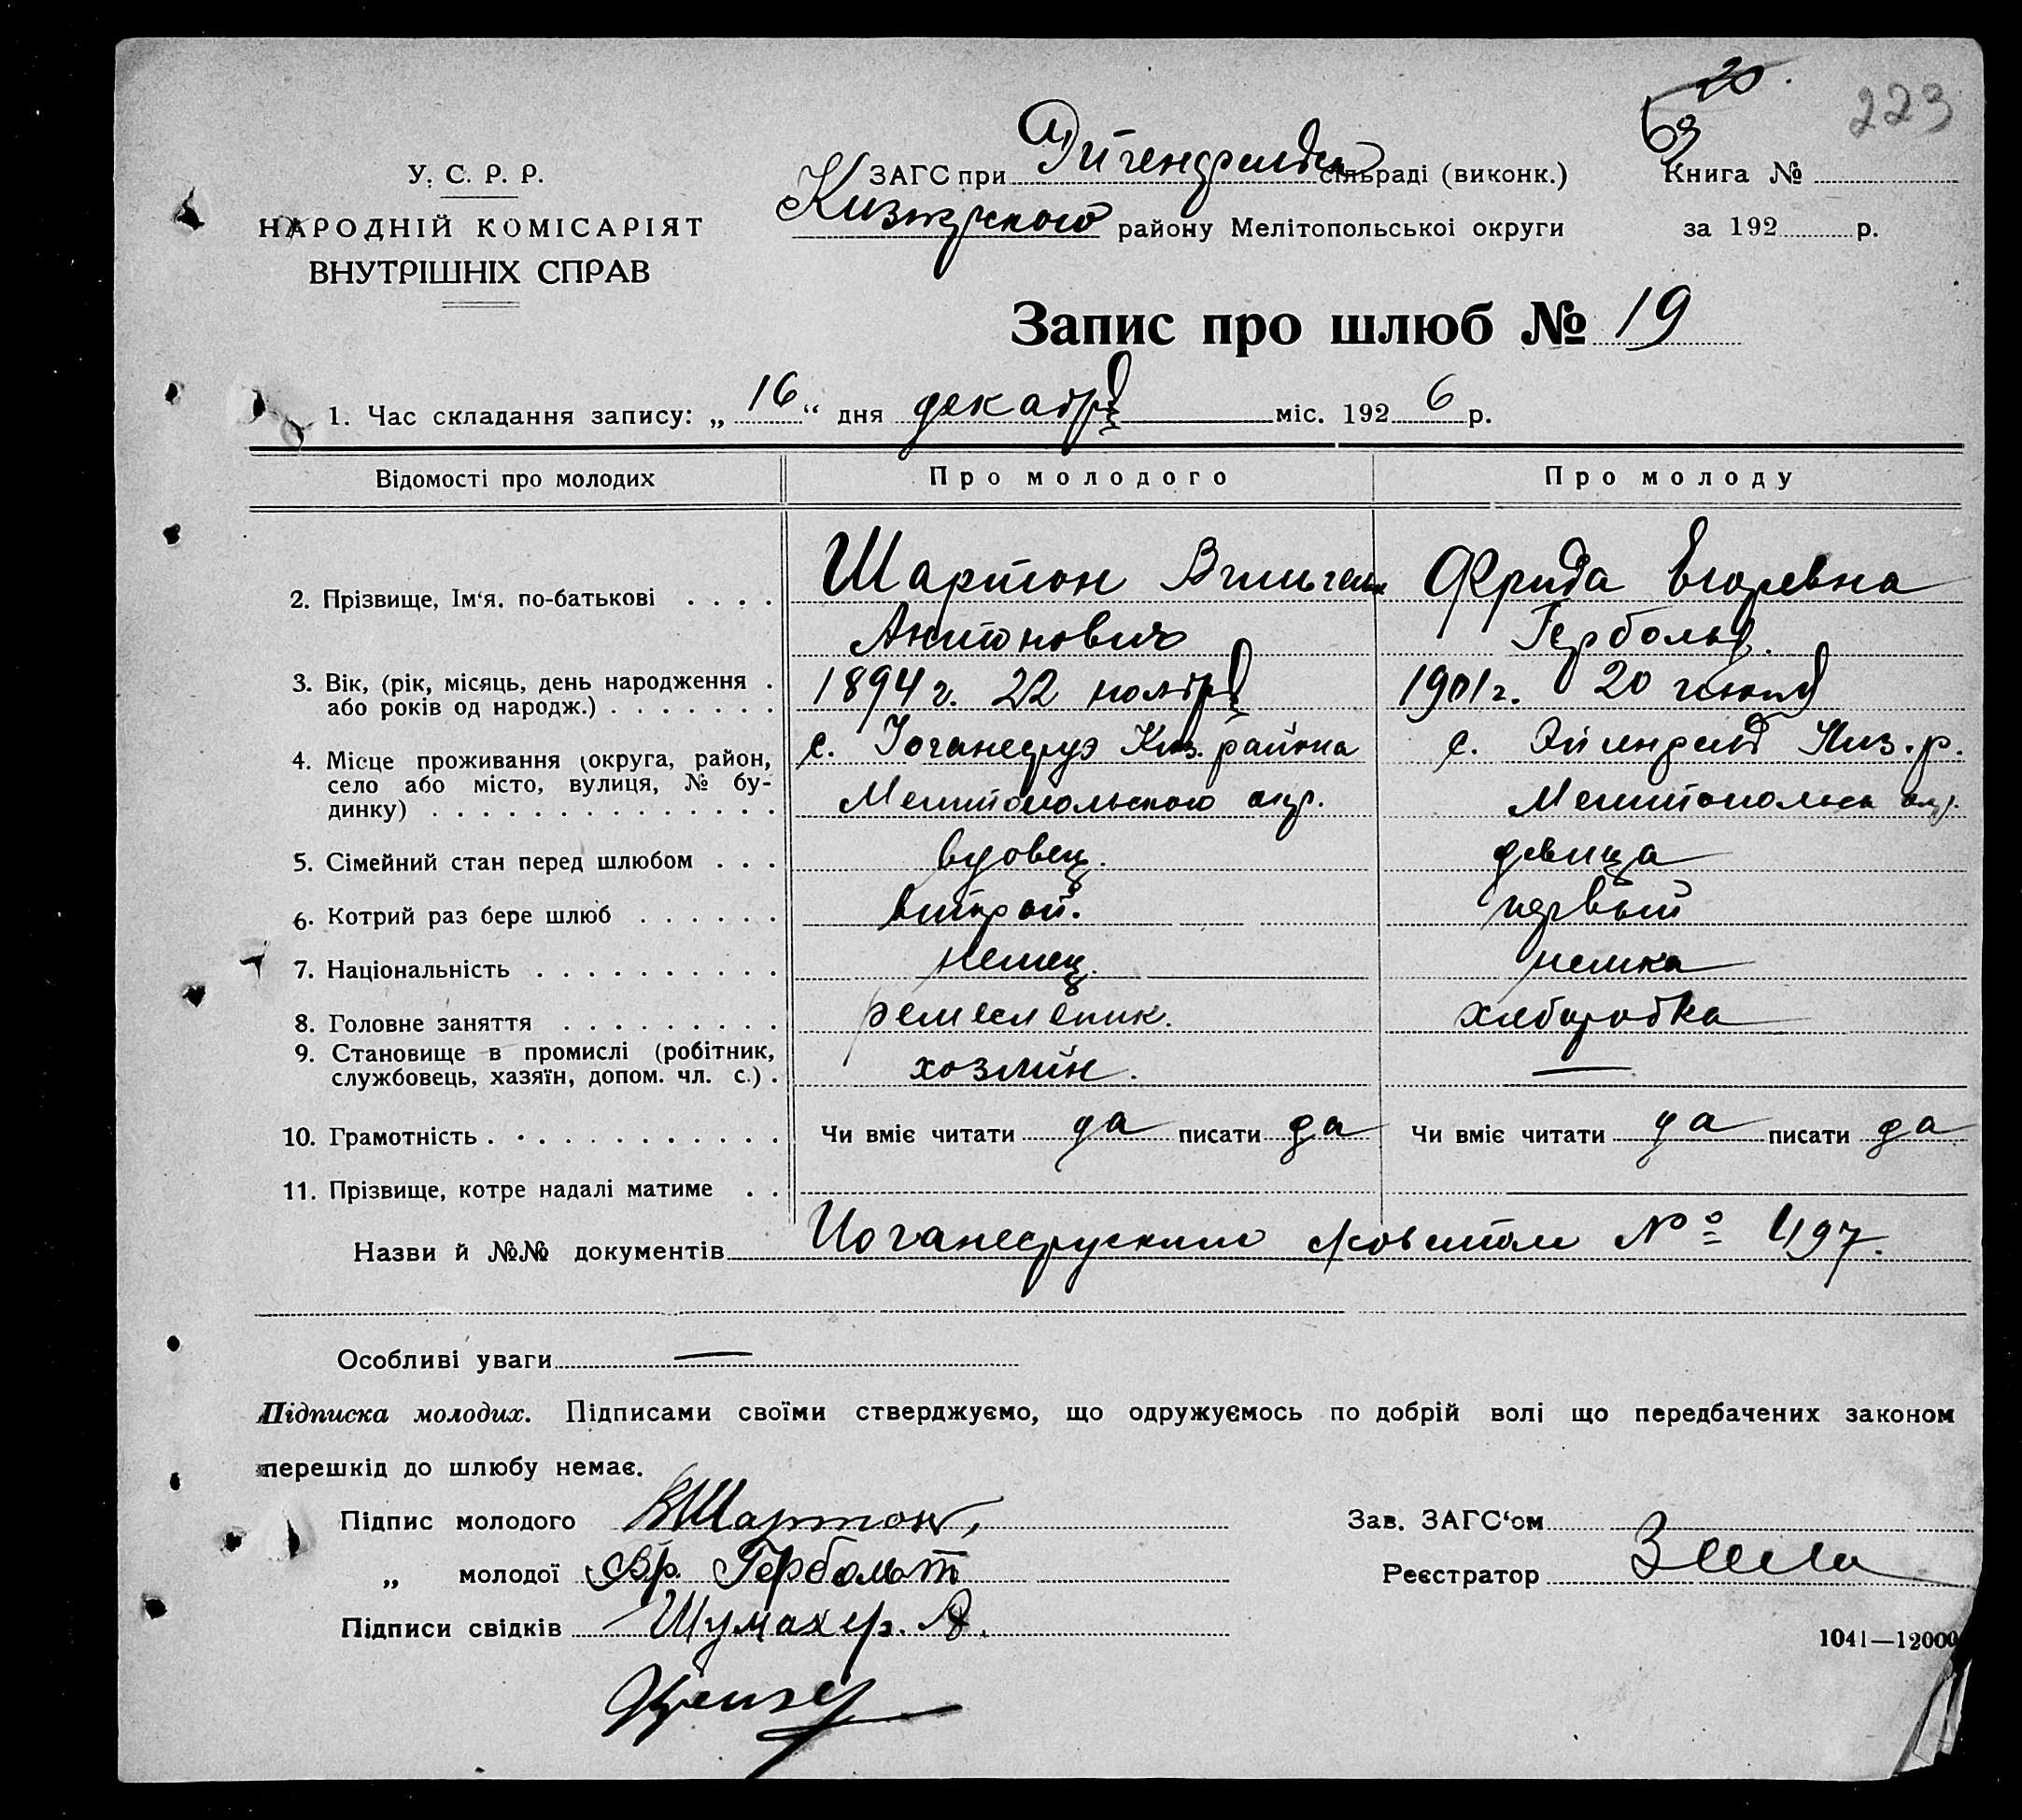 20.
69
223
У. С. Р. Р.
НАРОДНІЙ КОМІСАРІЯТ
ВНУТРІШНІХ СПРАВ
ЗАГС при сільраді (виконк.)
района Мелітопольської округи
Книга №
за 192 р.
Запис про шлюб № 19
1. Час складання запису: „ 16 “ дня декабря міс. 192 6 р.
Відомості про молодих Про молодого Про молоду
2. Прізвище, Ім‘я, по-батькові . . . . Шартон Вильгельм Фрида Егоревна
Антонович Гербольд.
3. Вік, (рік, місяць, день народження . 1894 г. 22 ноября 1901 г. 20 июня
або років од народж.) . . . . . . .
4. Місце проживання (округа, район, с. Иоганесруэ Киз. района с. Киз. р.
село або місто, вулиця, № бу- Мелитопольского окр. Мелитопольск окр.
динку) . . . . . . . . . . . . . .
5. Сімейний стан перед шлюбом . . . вдовец. девица
6. Котрий раз бере шлюб . . . . . . второй. первый
7. Національність . . . . . . . . . . немец. немка
8. Головне заняття . . . . . . . . . ремесленик. хлеборобка
9. Становище в промислі (робітник, хозяин. —
службовець, хазяїн, допом. чл. с.) .
10. Грамотність . . . . . . . . . . . . Чи вміє читати да писати да Чи вміє читати да писати да
11. Прізвище, котре надалі матиме . .
Назви й №№ документів Иоганесруским № 497.
Особливі уваги —
Підписка молодих. Підписами своїми стверджуємо, що одружуємось по добрій волі що передбачених законом
перешкід до шлюбу немає.
Підпис молодого ВШартон,
„ молодої Фр. Гербольт
Підписи свідків Шумахер. А.
Зав. ЗАГС‘ом
Реєстратор
1041—12000